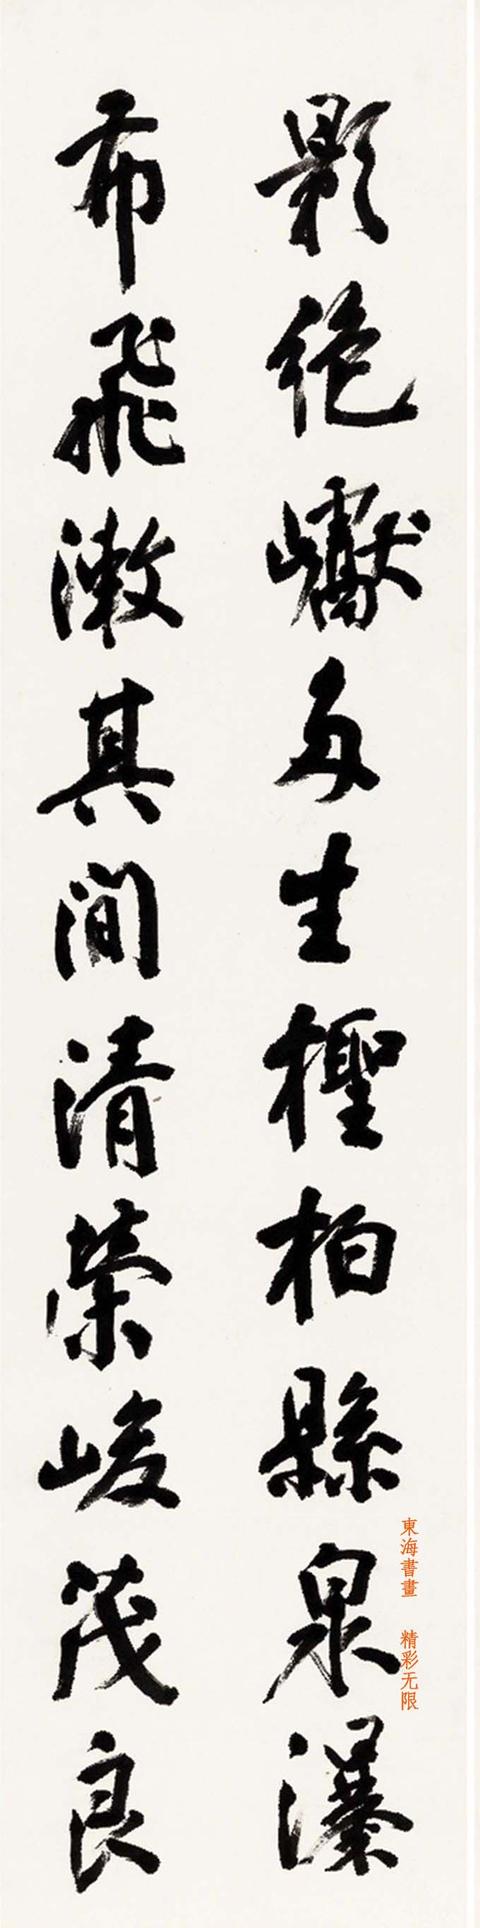 影絕巘多生檉柏縣泉瀑
布飛漱其間清榮峻茂良
東海書畫 精彩无限